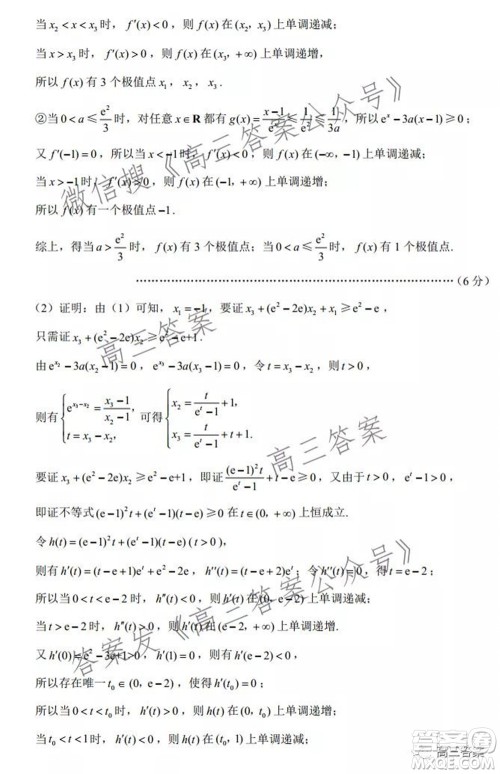 当 x₂ < x < x₃ 时， f′(x) < 0 ，则 f(x) 在 (x₂, x₃) 上单调递减；
当 x > x₃ 时， f′(x) > 0 ，则 f(x) 在 (x₃, +∞) 上单调递增，
所以 f(x) 有 3 个极值点 x₁ ， x₂ ， x₃ .
②当 0 < a ≤ e²/3 时，对任意 x ∈ R 都有 g(x) = (x−1)/eˣ ≤ 1/e² ≤ 1/(3a) ，所以 eˣ − 3a(x−1) ≥ 0 ；
又 f′(−1) = 0 ，所以当 x < −1 时， f′(x) < 0 ，则 f(x) 在 (−∞, −1) 上单调递减；
当 x > −1 时， f′(x) > 0 ，则 f(x) 在 (−1, +∞) 上单调递增；
所以 f(x) 有一个极值点 −1 .
综上，得当 a > e²/3 时， f(x) 有 3 个极值点；当 0 < a ≤ e²/3 时， f(x) 有 1 个极值点.
（6 分）
(2) 证明：由（1）可知， x₁ = −1 ，要证 x₃ + (e² − 2e)x₂ + x₁ ≥ e² − e ，
只需证 x₃ + (e² − 2e)x₂ ≥ e² − e + 1 .
由 e^(x₂) − 3a(x₂ − 1) = 0 ， e^(x₃) − 3a(x₃ − 1) = 0 ，令 t = x₃ − x₂ ，则 t > 0 ，
则有 { e^(x₃−x₂) = (x₃−1)/(x₂−1), t = x₃ − x₂, 可得 { x₂ = t/(eᵗ−1) + 1, x₃ = t/(eᵗ−1) + t + 1,
要证 x₃ + (e² − 2e)x₂ ≥ e² − e+1 ，即证 (e−1)²t/(eᵗ−1) + t − e ≥ 0 ，又由于 t > 0 ， eᵗ − 1 > 0 ，
即证不等式 (e−1)²t + (eᵗ−1)(t−e) ≥ 0 在 t ∈ (0, +∞) 上恒成立.
令 h(t) = (e−1)²t + (eᵗ−1)(t−e) (t > 0) ，
则有 h′(t) = (t − e + 1)eᵗ + e² − 2e ， h″(t) = (t − e + 2)eᵗ ； h″(t) = 0 ，得 t = e − 2 ；
所以当 0 < t < e − 2 时， h″(t) < 0 ， h′(t) 在 (0, e − 2) 上单调递减；
当 t > e − 2 时， h″(t) > 0 ， h′(t) 在 (e − 2, +∞) 上单调递增.
又 h′(0) = e² − 3e+1>0 ， h′(1) = 0 ，则有 h′(e − 2) < 0 ，
所以存在唯一 t₀ ∈ (0, e − 2) ，使得 h′(t₀) = 0 ；
所以当 0 < t < t₀ 时， h′(t) > 0 ， h(t) 在 (0, t₀) 上单调递增；
当 t₀ < t < 1 时， h′(t) < 0 ， h(t) 在 (t₀, 1) 上单调递减；
微信搜《高三答案公众号》
高三答案
高三答案
答案发《高三答案公众号》
高三答案
MXQE.COM